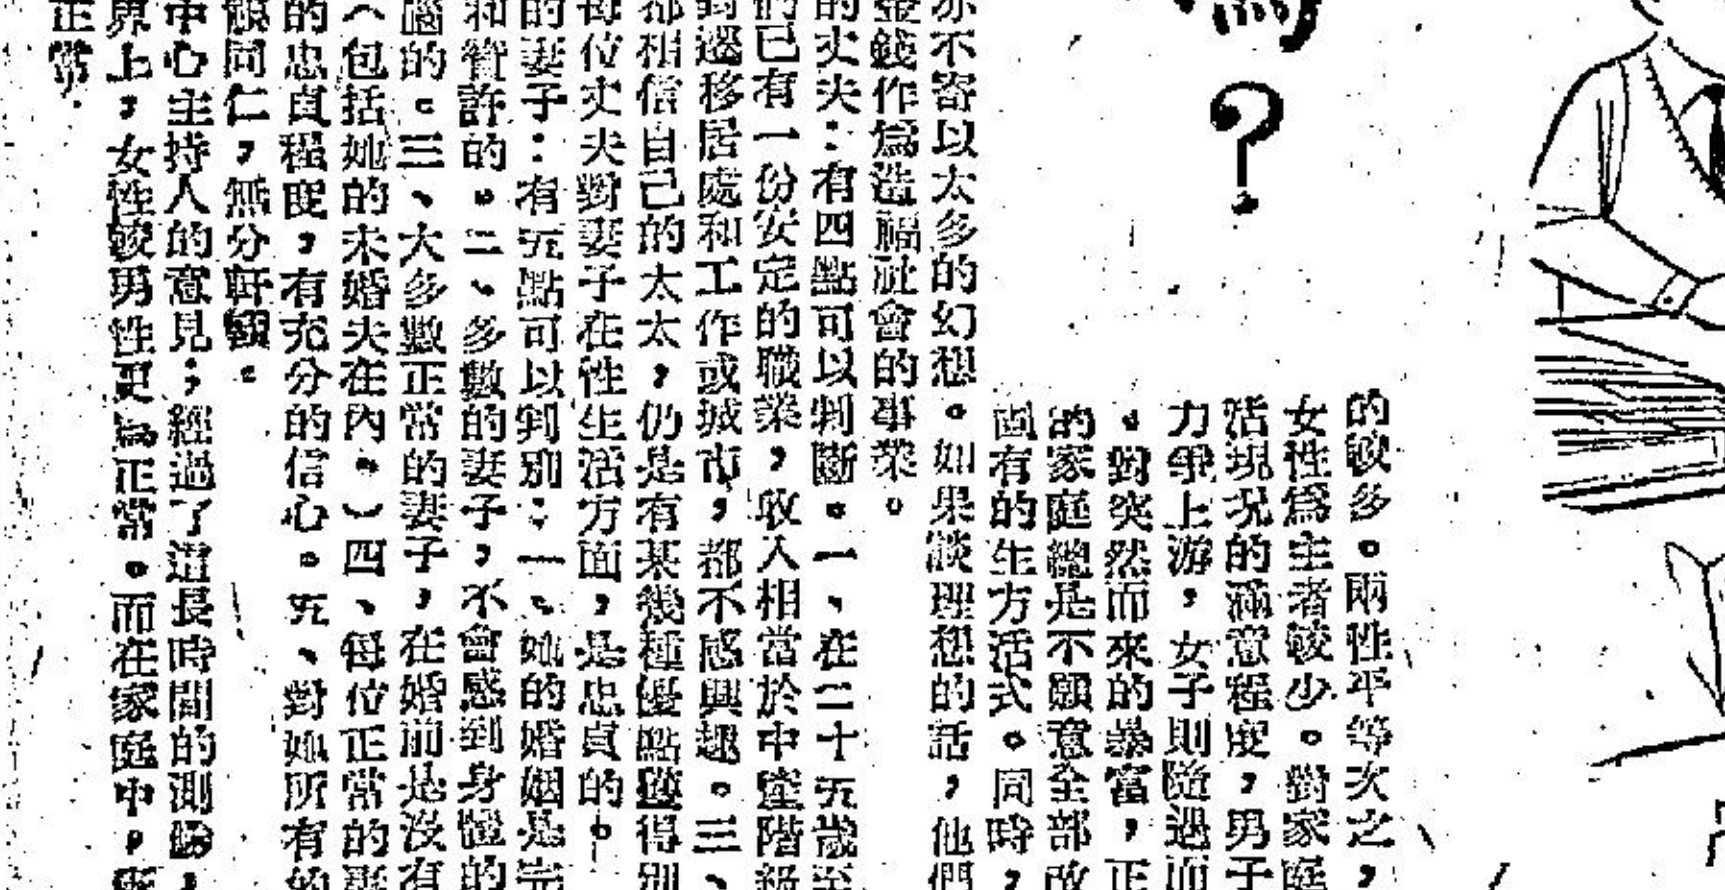 嗎？
的較多。兩性平等次之，
女性爲主者較少。對家庭
活現况的滿意程度，男子
力爭上游，女子則隨遇而
。對突然而來的暴富，正
的家庭總是不願意全部改
固有的生方活式。同時，
亦不寄以太多的幻想。如果談理想的話，他們
金錢作爲造福社會的事業。
的丈夫：有四點可以判斷。一、在二十五歲至
們已有一份安定的職業，收入相當於中產階級
對遷移居處和工作或城市，都不感興趣。三、
都相信自己的太太，仍是有某幾種優點獲得別
每位丈夫對妻子在性生活方面，是忠貞的。
的妻子：有五點可以判別：一、她的婚姻是完
和贊許的。二、多數的妻子，不會感到身體的
腦的。三、大多數正常的妻子，在婚前是沒有
（包括她的未婚夫在內。）四、每位正常的妻
的忠貞程度，有充分的信心。五、對她所有的
視同仁，無分軒輊。
中心主持人的意見；經過了這長時間的測驗，
界上，女性較男性更爲正常。而在家庭中，
正常。